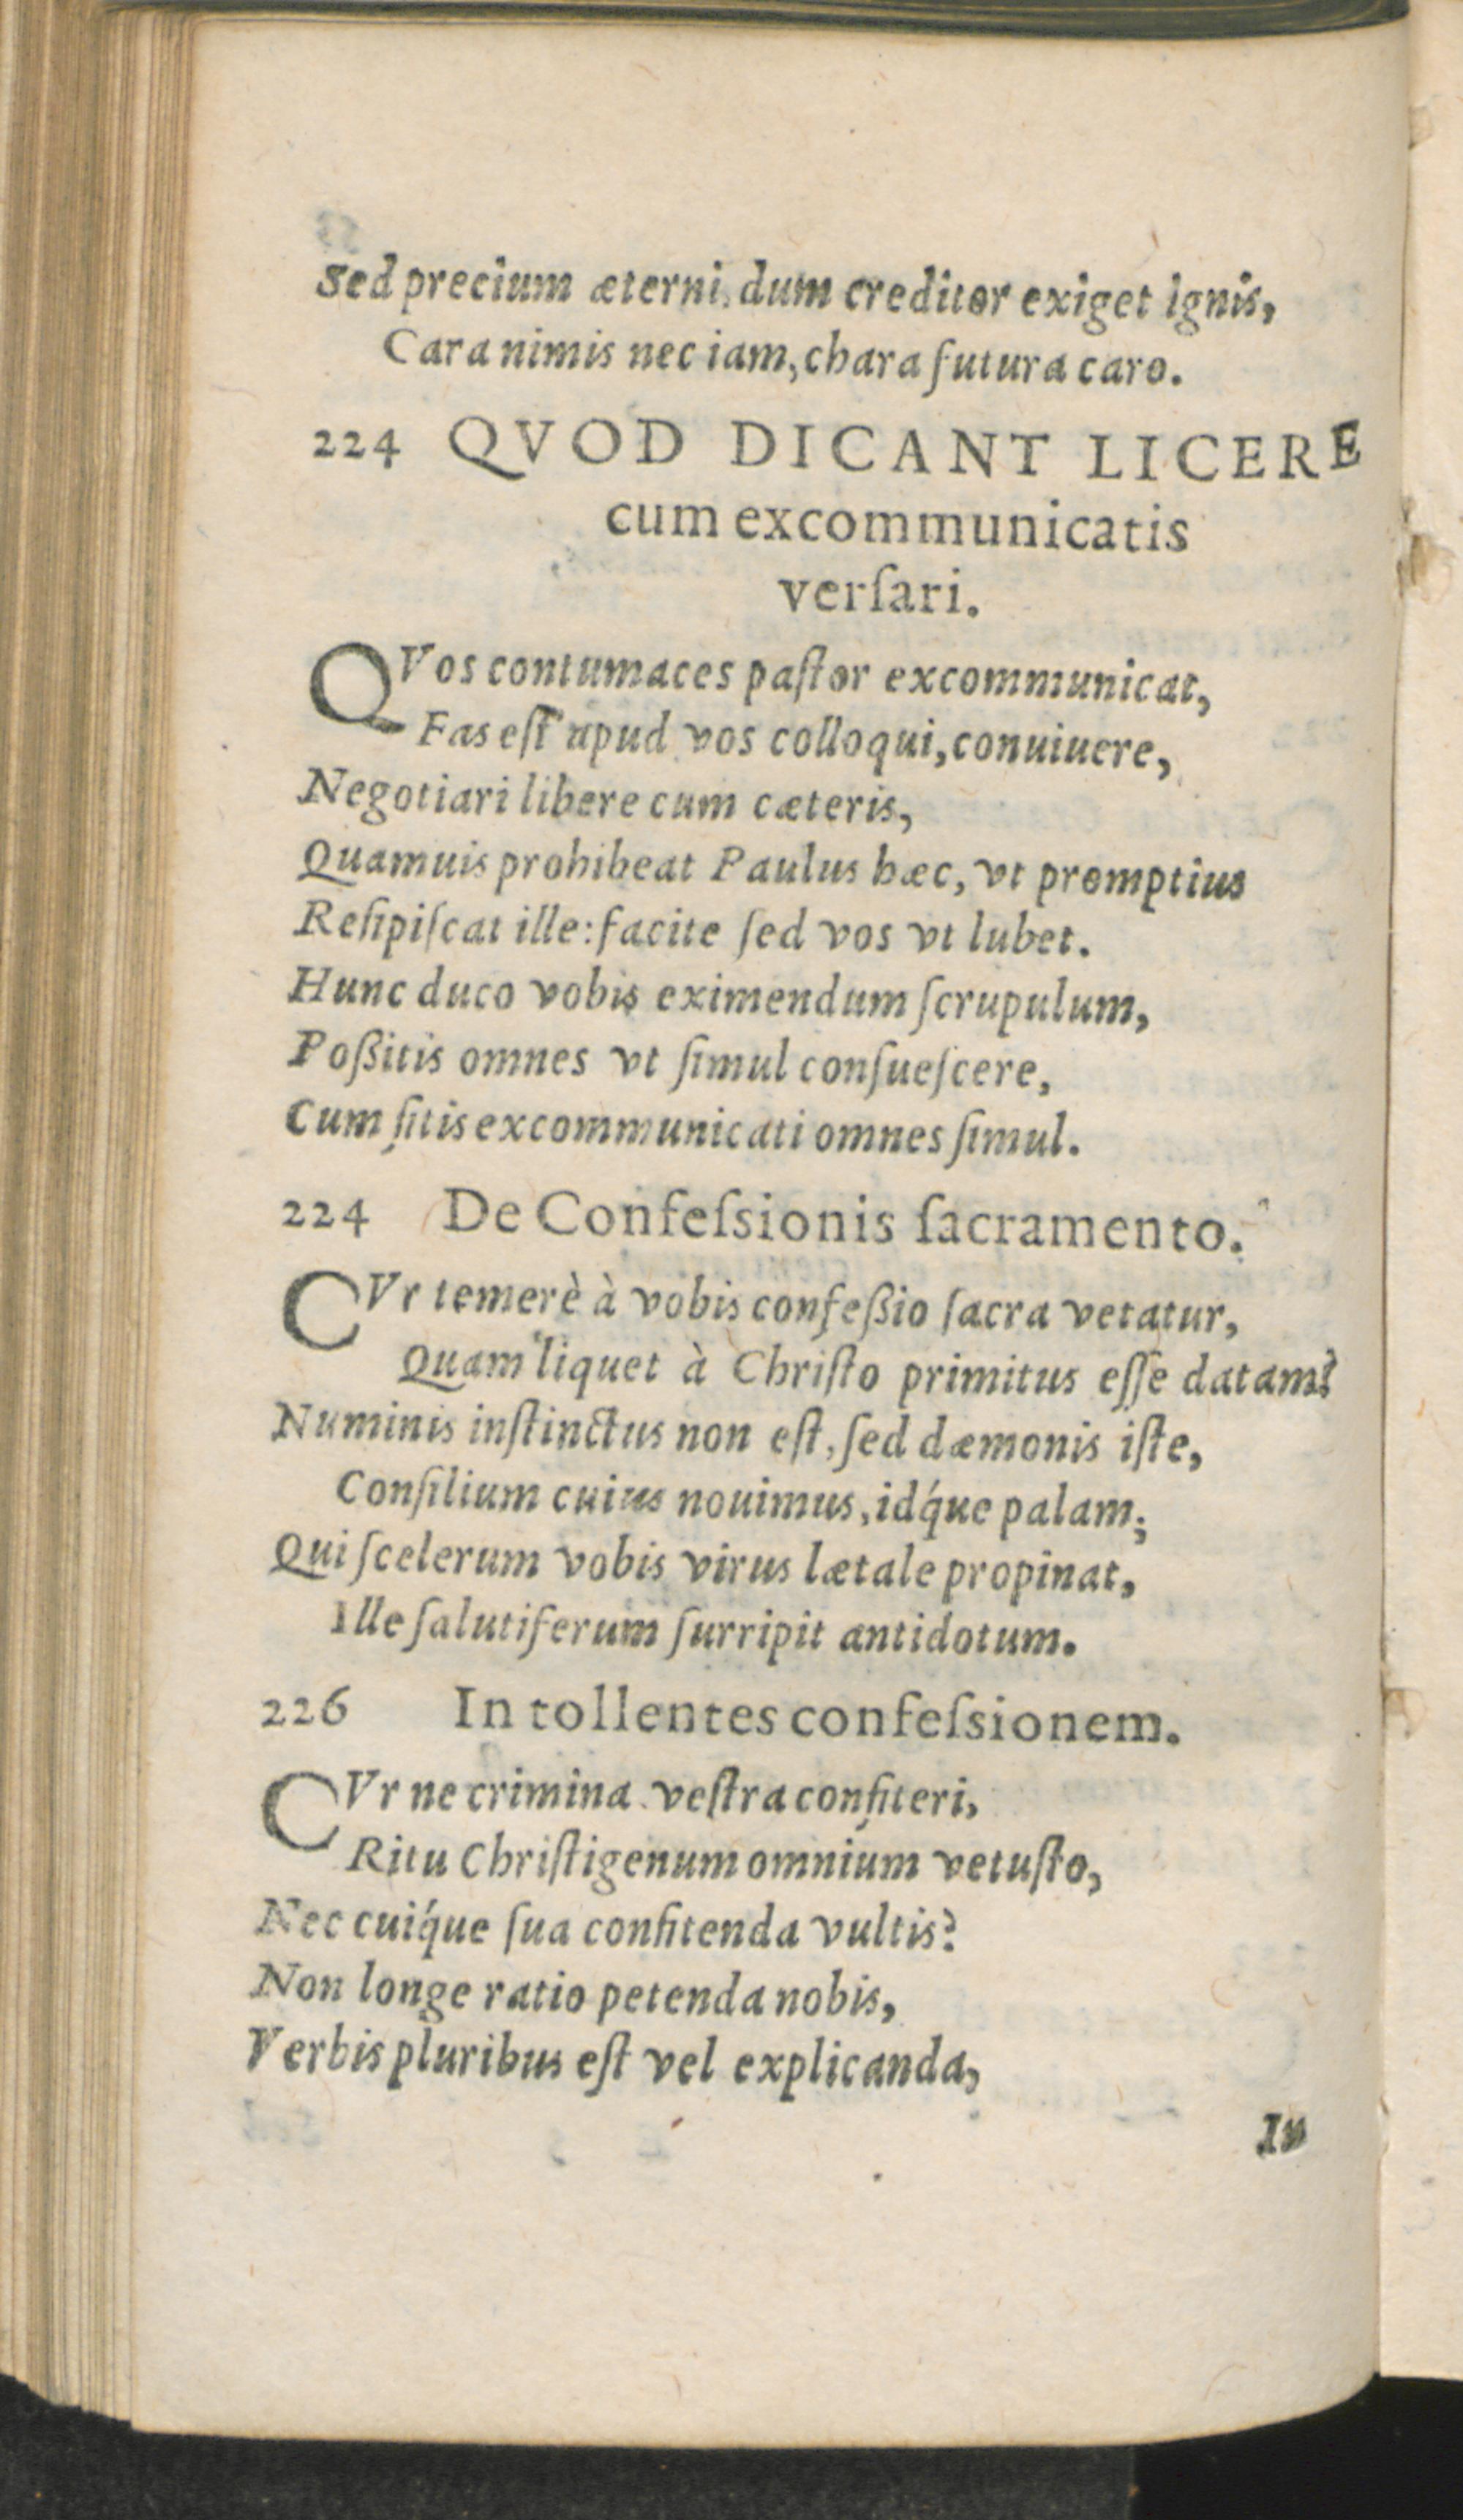 Sed precium æterni dum creditor exiget ignis,
Cara nimis nec iam, chara futura caro.
224 QVOD DICANT LICERE
cum excommunicatis
verſari.
QVos contumaces paſtor excommunicat,
Fas eſt apud vos colloqui, conuiuere,
Negotiari libere cum cæteris,
Quamuis prohibeat Paulus hæc, vt promptius
Reſipiſcat ille: facite ſed vos vt lubet.
Hunc duco vobis eximendum ſcrupulum,
Poßitis omnes vt ſimul conſueſcere,
Cum ſitis excommunicati omnes ſimul.
224 De Confeſsionis ſacramento.
CVr temerè à vobis confeßio ſacra vetatur,
Quam liquet à Chriſto primitus eſſe datam?
Numinis inſtinctus non eſt, ſed dæmonis iſte,
Conſilium cuius nouimus, idq́ue palam;
Qui ſcelerum vobis virus lætale propinat,
Ille ſalutiferum ſurripit antidotum.
226 In tollentes confeſsionem.
CVr ne crimina veſtra confiteri,
Ritu Chriſtigenum omnium vetuſto,
Nec cuiq́ue ſua confitenda vultis?
Non longe ratio petenda nobis,
Verbis pluribus eſt vel explicanda,
In